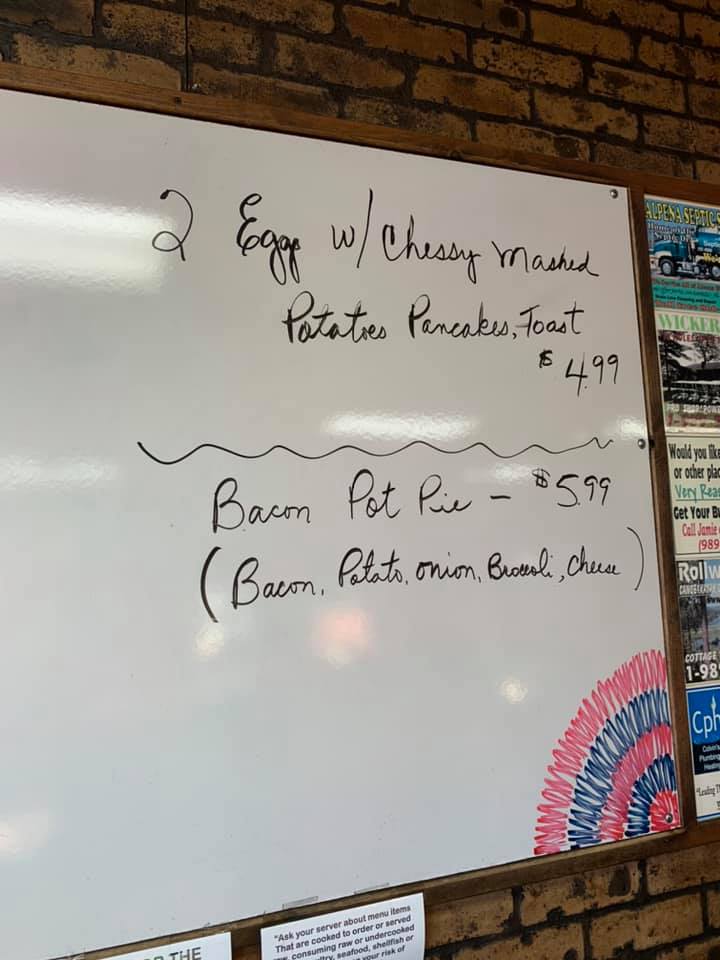 2 Eggs w/ Chessy Mashed
Potatoes Pancakes, Toast
$4.99
Bacon Pot Pie - $5.99
(Bacon, Potato, onion, Broccoli, Cheese)
ALPENA SEPTIC
WICKER
Would you like
or other plac
Very Reas
Get Your Bu
Call Jamie
(989
Rollw
COTTAGE
1-98
Cph
Plumbing
Heating
"Leading
THE
"Ask your server about menu items
That are cooked to order or served
consuming raw or undercooked
seafood, shellfish or
your risk of